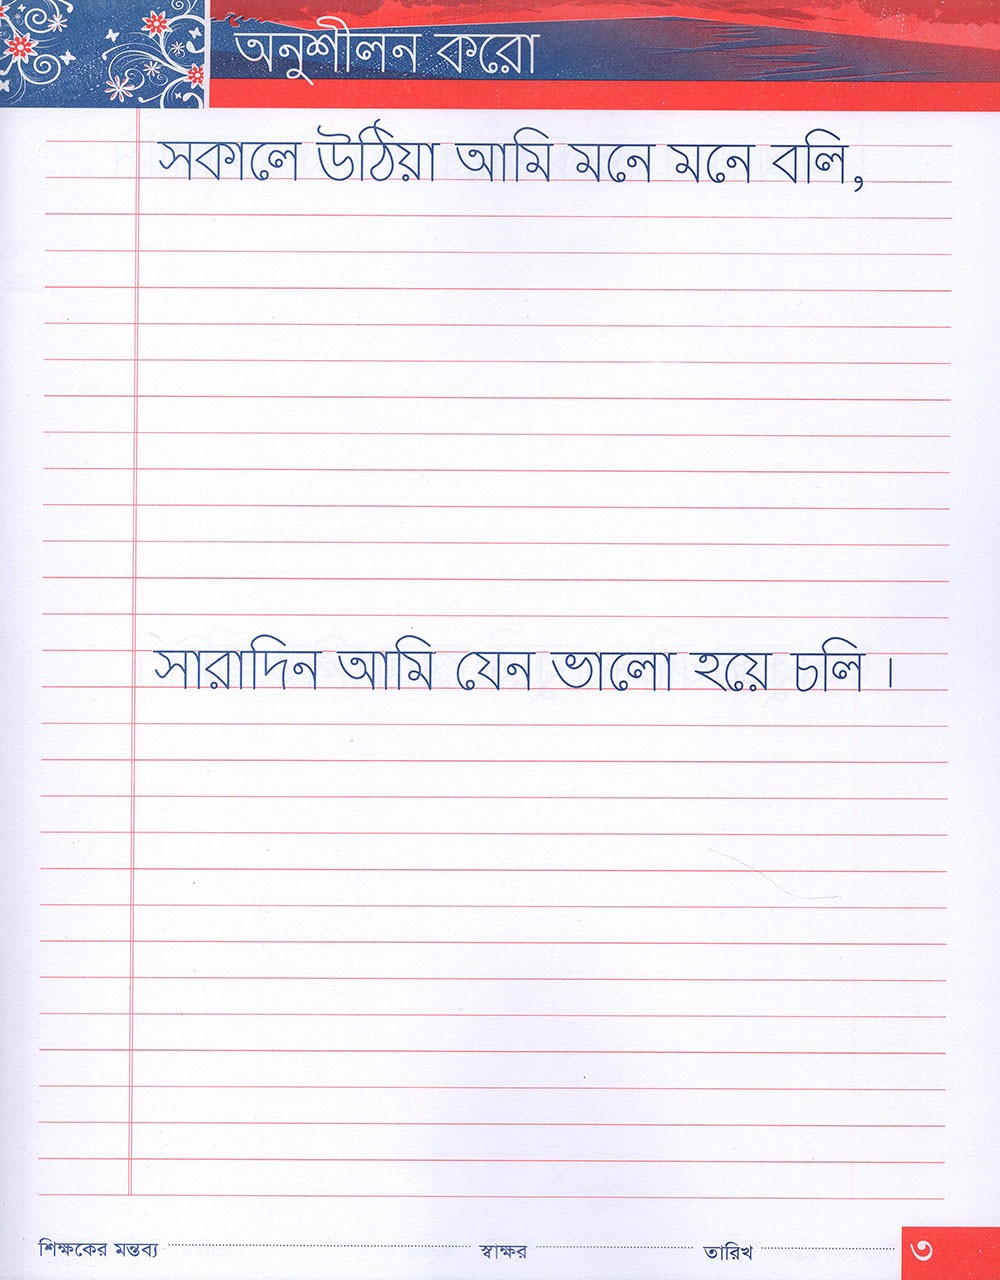 অনুশীলন করো
সকালে উঠিয়া আমি মনে মনে বলি,
সারাদিন আমি যেন ভালো হয়ে চলি ।
শিক্ষকের মন্তব্য ........ স্বাক্ষর ........ তারিখ ........ ৩